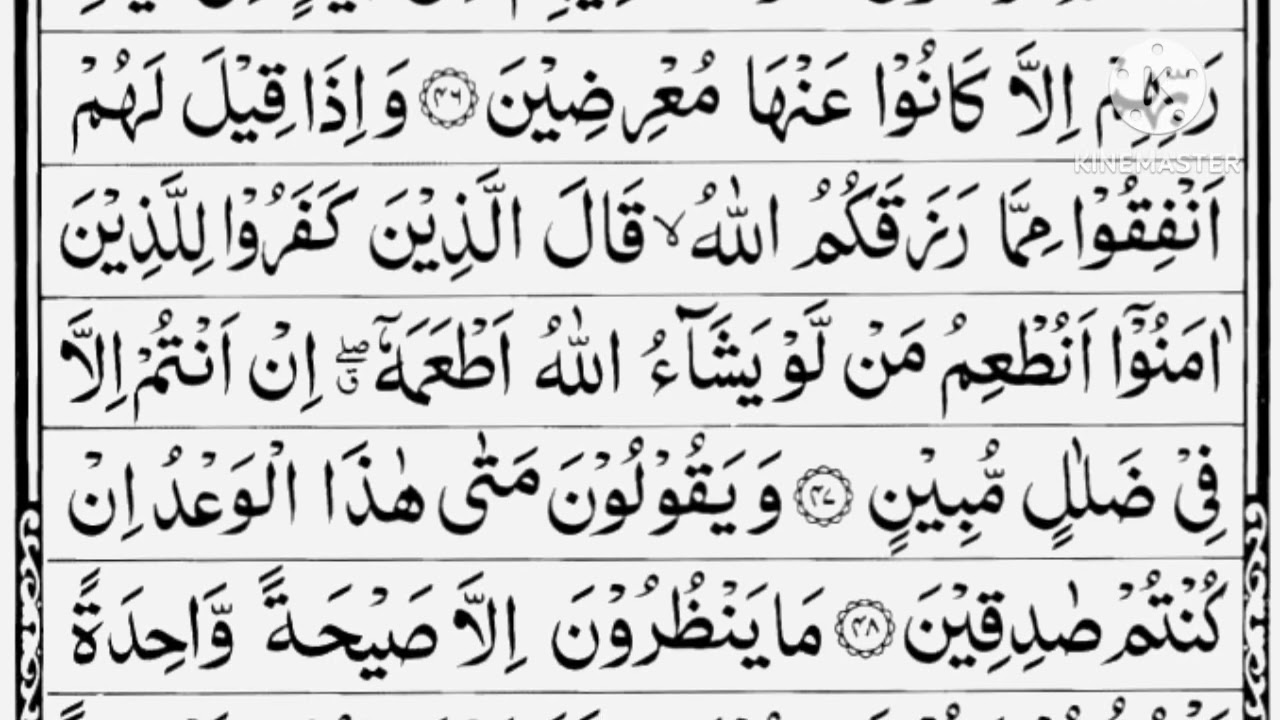 رَبِّهِمْ اِلَّا كَانُوْا عَنْهَا مُعْرِضِيْنَ ﴿۴۶﴾ وَ اِذَا قِيْلَ لَهُمْ
KINEMASTER
اَنْفِقُوْا مِمَّا رَزَقَكُمُ اللّٰهُ ۙ قَالَ الَّذِيْنَ كَفَرُوْا لِلَّذِيْنَ
اٰمَنُوْۤا اَنُطْعِمُ مَنْ لَّوْ يَشَآءُ اللّٰهُ اَطْعَمَهٗۤ ۖق اِنْ اَنْتُمْ اِلَّا
فِیْ ضَلٰلٍ مُّبِيْنٍ ﴿۴۷﴾ وَ يَقُوْلُوْنَ مَتٰی هٰذَا الْوَعْدُ اِنْ
كُنْتُمْ صٰدِقِيْنَ ﴿۴۸﴾ مَا يَنْظُرُوْنَ اِلَّا صَيْحَةً وَّاحِدَةً